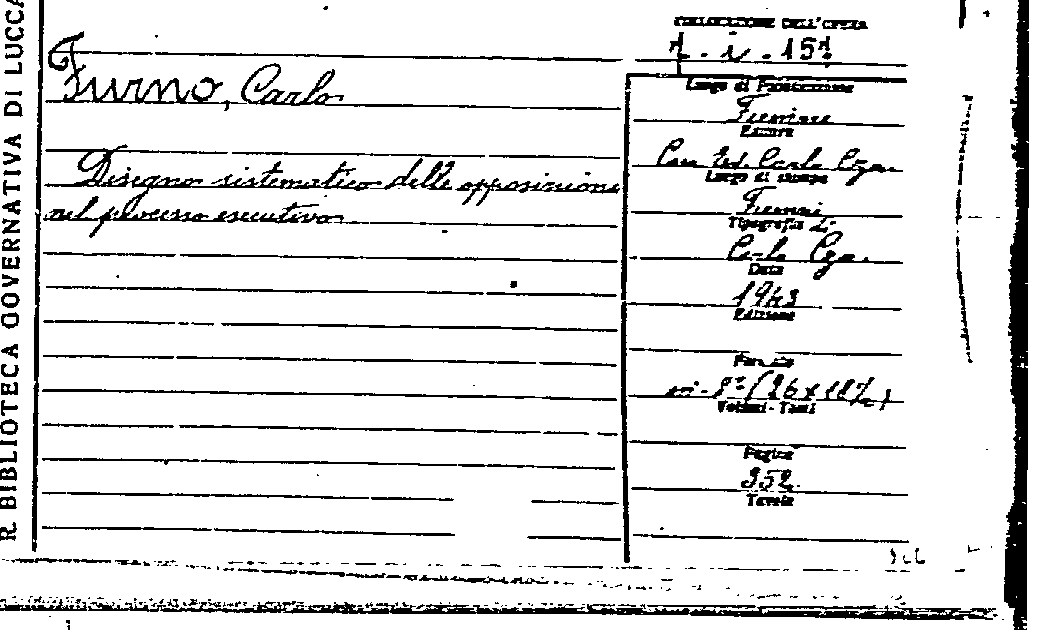 R. BIBLIOTECA GOVERNATIVA DI LUCCA
Furno, Carlo
Disegno sistematico delle opposizione
nel processo esecutivo
COLLOCAZIONE DELL'OPERA
Luogo di Pubblicazione
Firenze
Editore
Casa Ed. Carlo Cya.
Luogo di stampa
Firenze
Tipografia
Carlo Cya.
Data
1943
Edizione
Formato
in-8º (26 x 18½)
Volumi - Tomi
Pagine
352
Tavole